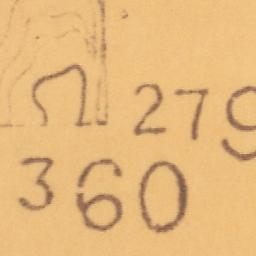 279
360